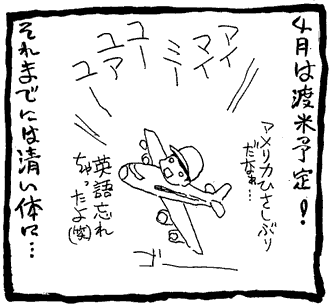 4月は渡米予定！
それまでには清い体に…
アイ
マイ
ミー
ユー
ユア
ユー
アメリカひさしぶり
だなぁ…
英語忘れ
ちゃったよ(笑)
ゴー